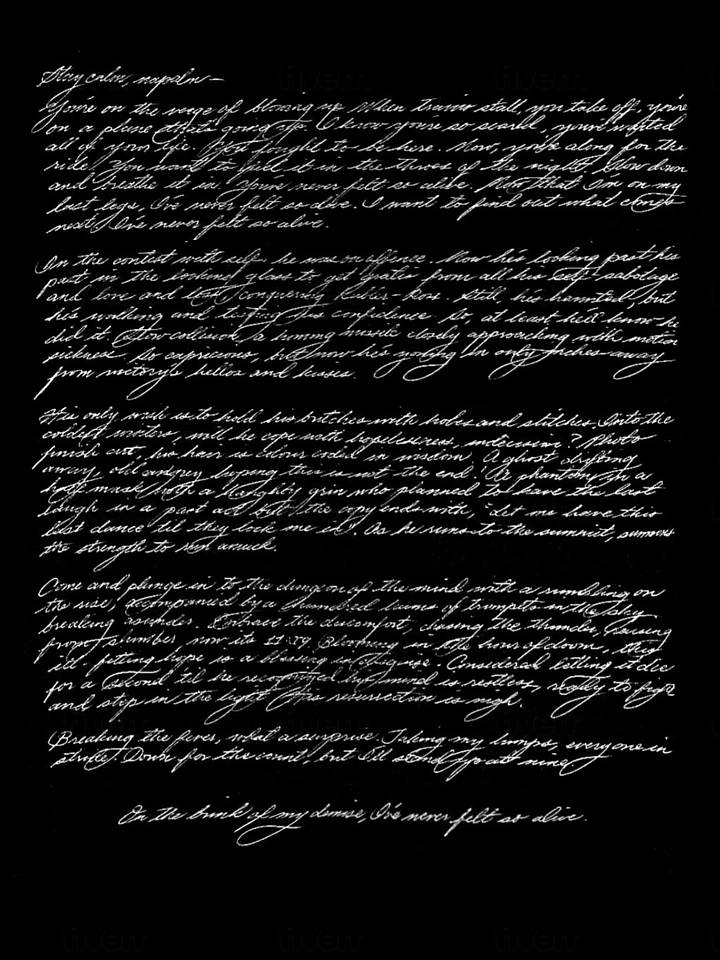 Stay calm, napalm—
You're on the verge of blowing up. When trains stall, you take off, you're
on a plane that's going up. I know you're so scared, you've waited
all of your life. You fought to be here. Now, you're along for the
ride. You want to feel it in the throes of the night. Slow down
and breathe it in. You've never felt so alive. Now that I'm on my
last legs, I've never felt so alive. I want to find out what comes
next. I've never felt so alive.
In the contest with self he was on offence. Now he's looking past his
past in the looking glass to get gratis from all his self-sabotage
and love and loss, conquering Kubler-Ross. Still, he's haunted, but
he's walking and his confidence so, at least he'll know he
did it. Slow collision, a humming missile closely approaching with motion
sickness. So capricious, but now he's only inches away
from victory's hellos and kisses.
His only wish is to hold his britches with hobes and stitches. Into the
coldest winters, will he cope with hopelessness, indecision? Photo
finish cut, his hair is colour coded in wisdom. A ghost drifting
away, old and grey hoping this is not the end! A phantom in a
half mask with a naughty grin who planned to have the last
laugh in a past act but the copy ends with, "Let me have this
last dance 'til they lock me in". As he runs to the summit, summons
the strength to run amuck.
Come and plunge in to the dungeon of the mind with a rumbling on
the rise, accompanied by a hundred hums of trumpets in the sky
breaking asunder. Embrace the discomfort, chasing the thunder, rousing
from slumber now its 11:59. Blooming in the hour of down, this
ill-fitting hope is a blessing in disguise. Considered letting it die
for a second 'til he recognized his mind is restless, ready to fight
and step in the light. His resurrection is nigh.
Breaking the fever, what a surprise. Taking my lumps, everyone in
strike. Down for the count, but I'll stand up at nine
On the brink of my demise, I've never felt so alive.